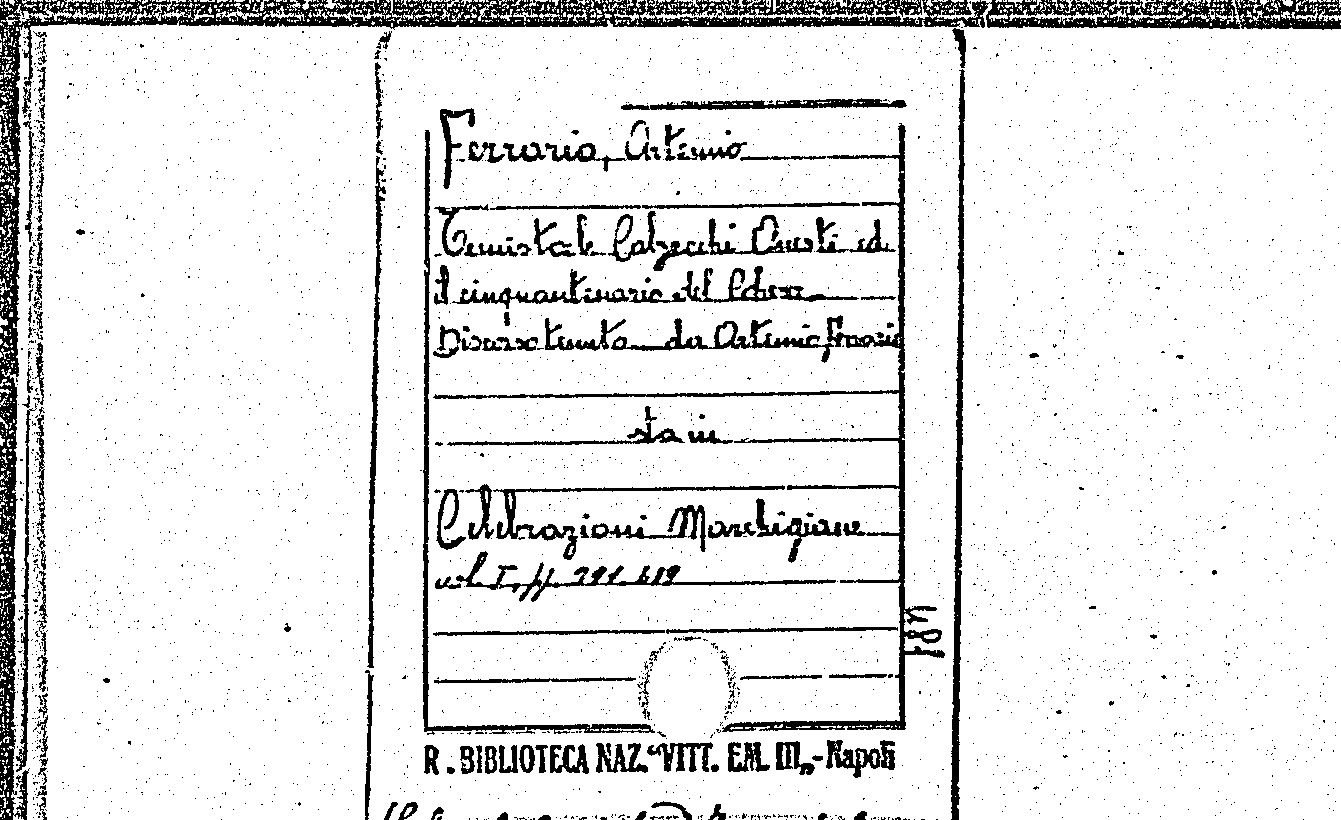 Ferraria, Artemio
Temistocle Calzecchi Onesti ed
il cinquantenario del Coherer
Discorso tenuto da Artemio Ferraria
sta in
Celebrazioni Marchigiane
vol. I, pp.
R. BIBLIOTECA NAZ. "VITT. EM. III„-Napoli